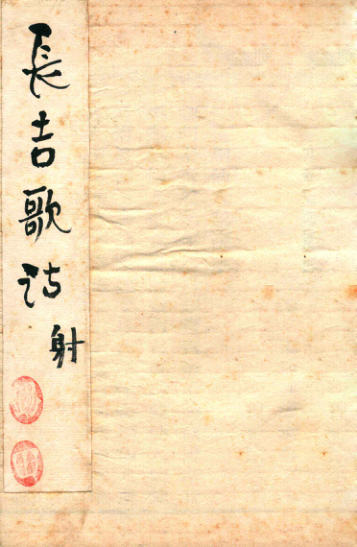 長吉歌詩
射